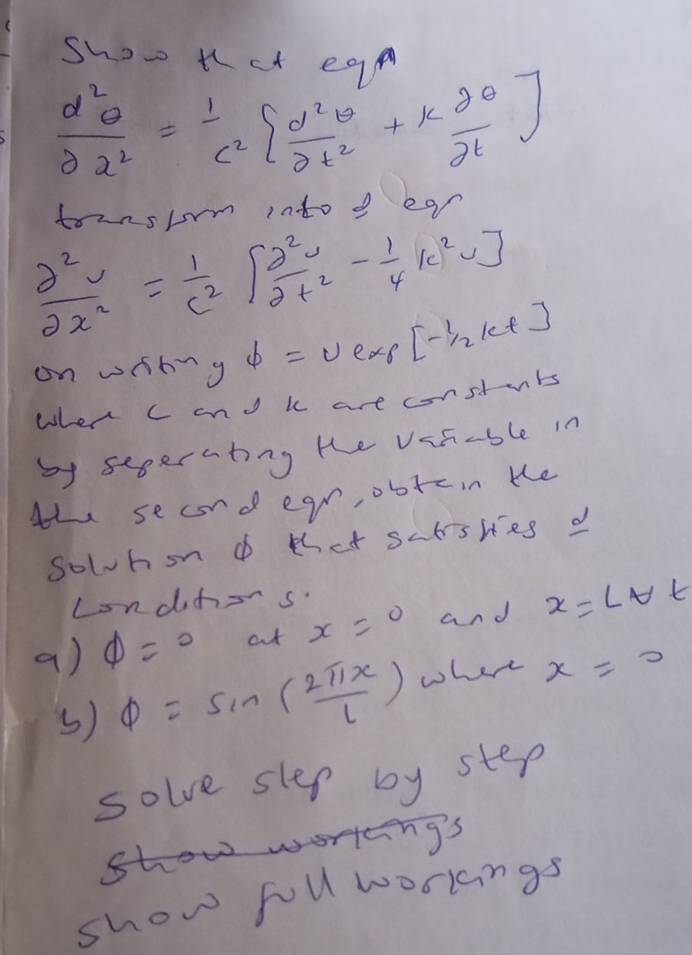 Show that eqn
d²θ/∂x² = 1/c² {d²θ/∂t² + k ∂θ/∂t]
transform into d eqn
∂²v/∂x² = 1/c² [∂²v/∂t² - 1/4 k²v]
on writing ϕ = v exp[-½kt]
where c and k are constants
by seperating the variable in
the second eqn, obtain the
solution ϕ that satisfies d
conditions.
a) ϕ = 0 at x = 0 and x = L ∀ t
b) ϕ = sin(2πx/L) where x = 0
solve step by step
show workings
show full workings